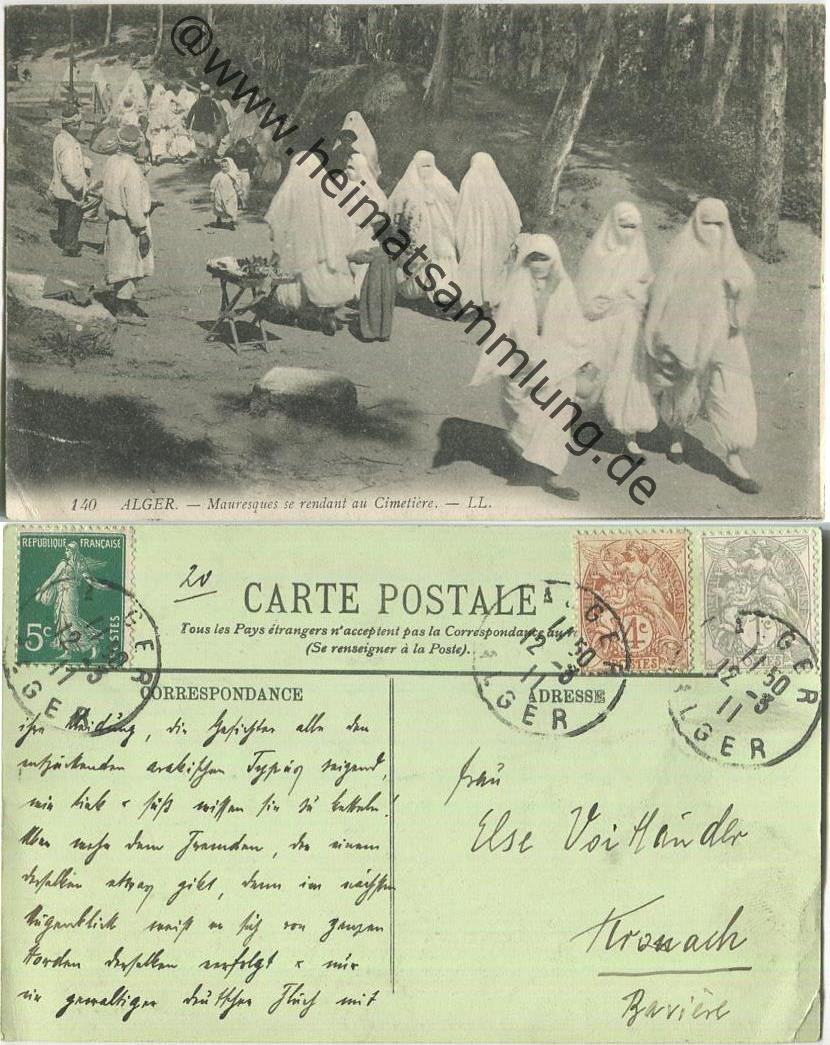 @www.heimatsammlung.de
140 ALGER. — Mauresques se rendant au Cimetière. — LL.
REPUBLIQUE FRANÇAISE
5c
POSTES
20
CARTE POSTALE
Tous les Pays étrangers n'acceptent pas la Correspondance au
(Se renseigner à la Poste).
4c
POSTES
ALGER
12 -3
11
ALGER
ALGER
12 -3
11
ALGER
ALGER
12 -3
11
ALGER
CORRESPONDANCE
ADRESSE
ihre Kleidung, die Gesichter alle den
entzückenden arabischen Typus zeigend,
wie lieb & süß wissen sie zu betteln!
Aber wehe dem Fremden, der einem
derselben etwas gibt, denn im nächsten
Augenblick weiß er sich von ganzen
Horden derselben verfolgt & nur
ein gewaltiger deutscher Fluch mit
Frau
Else Voitländer
Kronach
Bavière